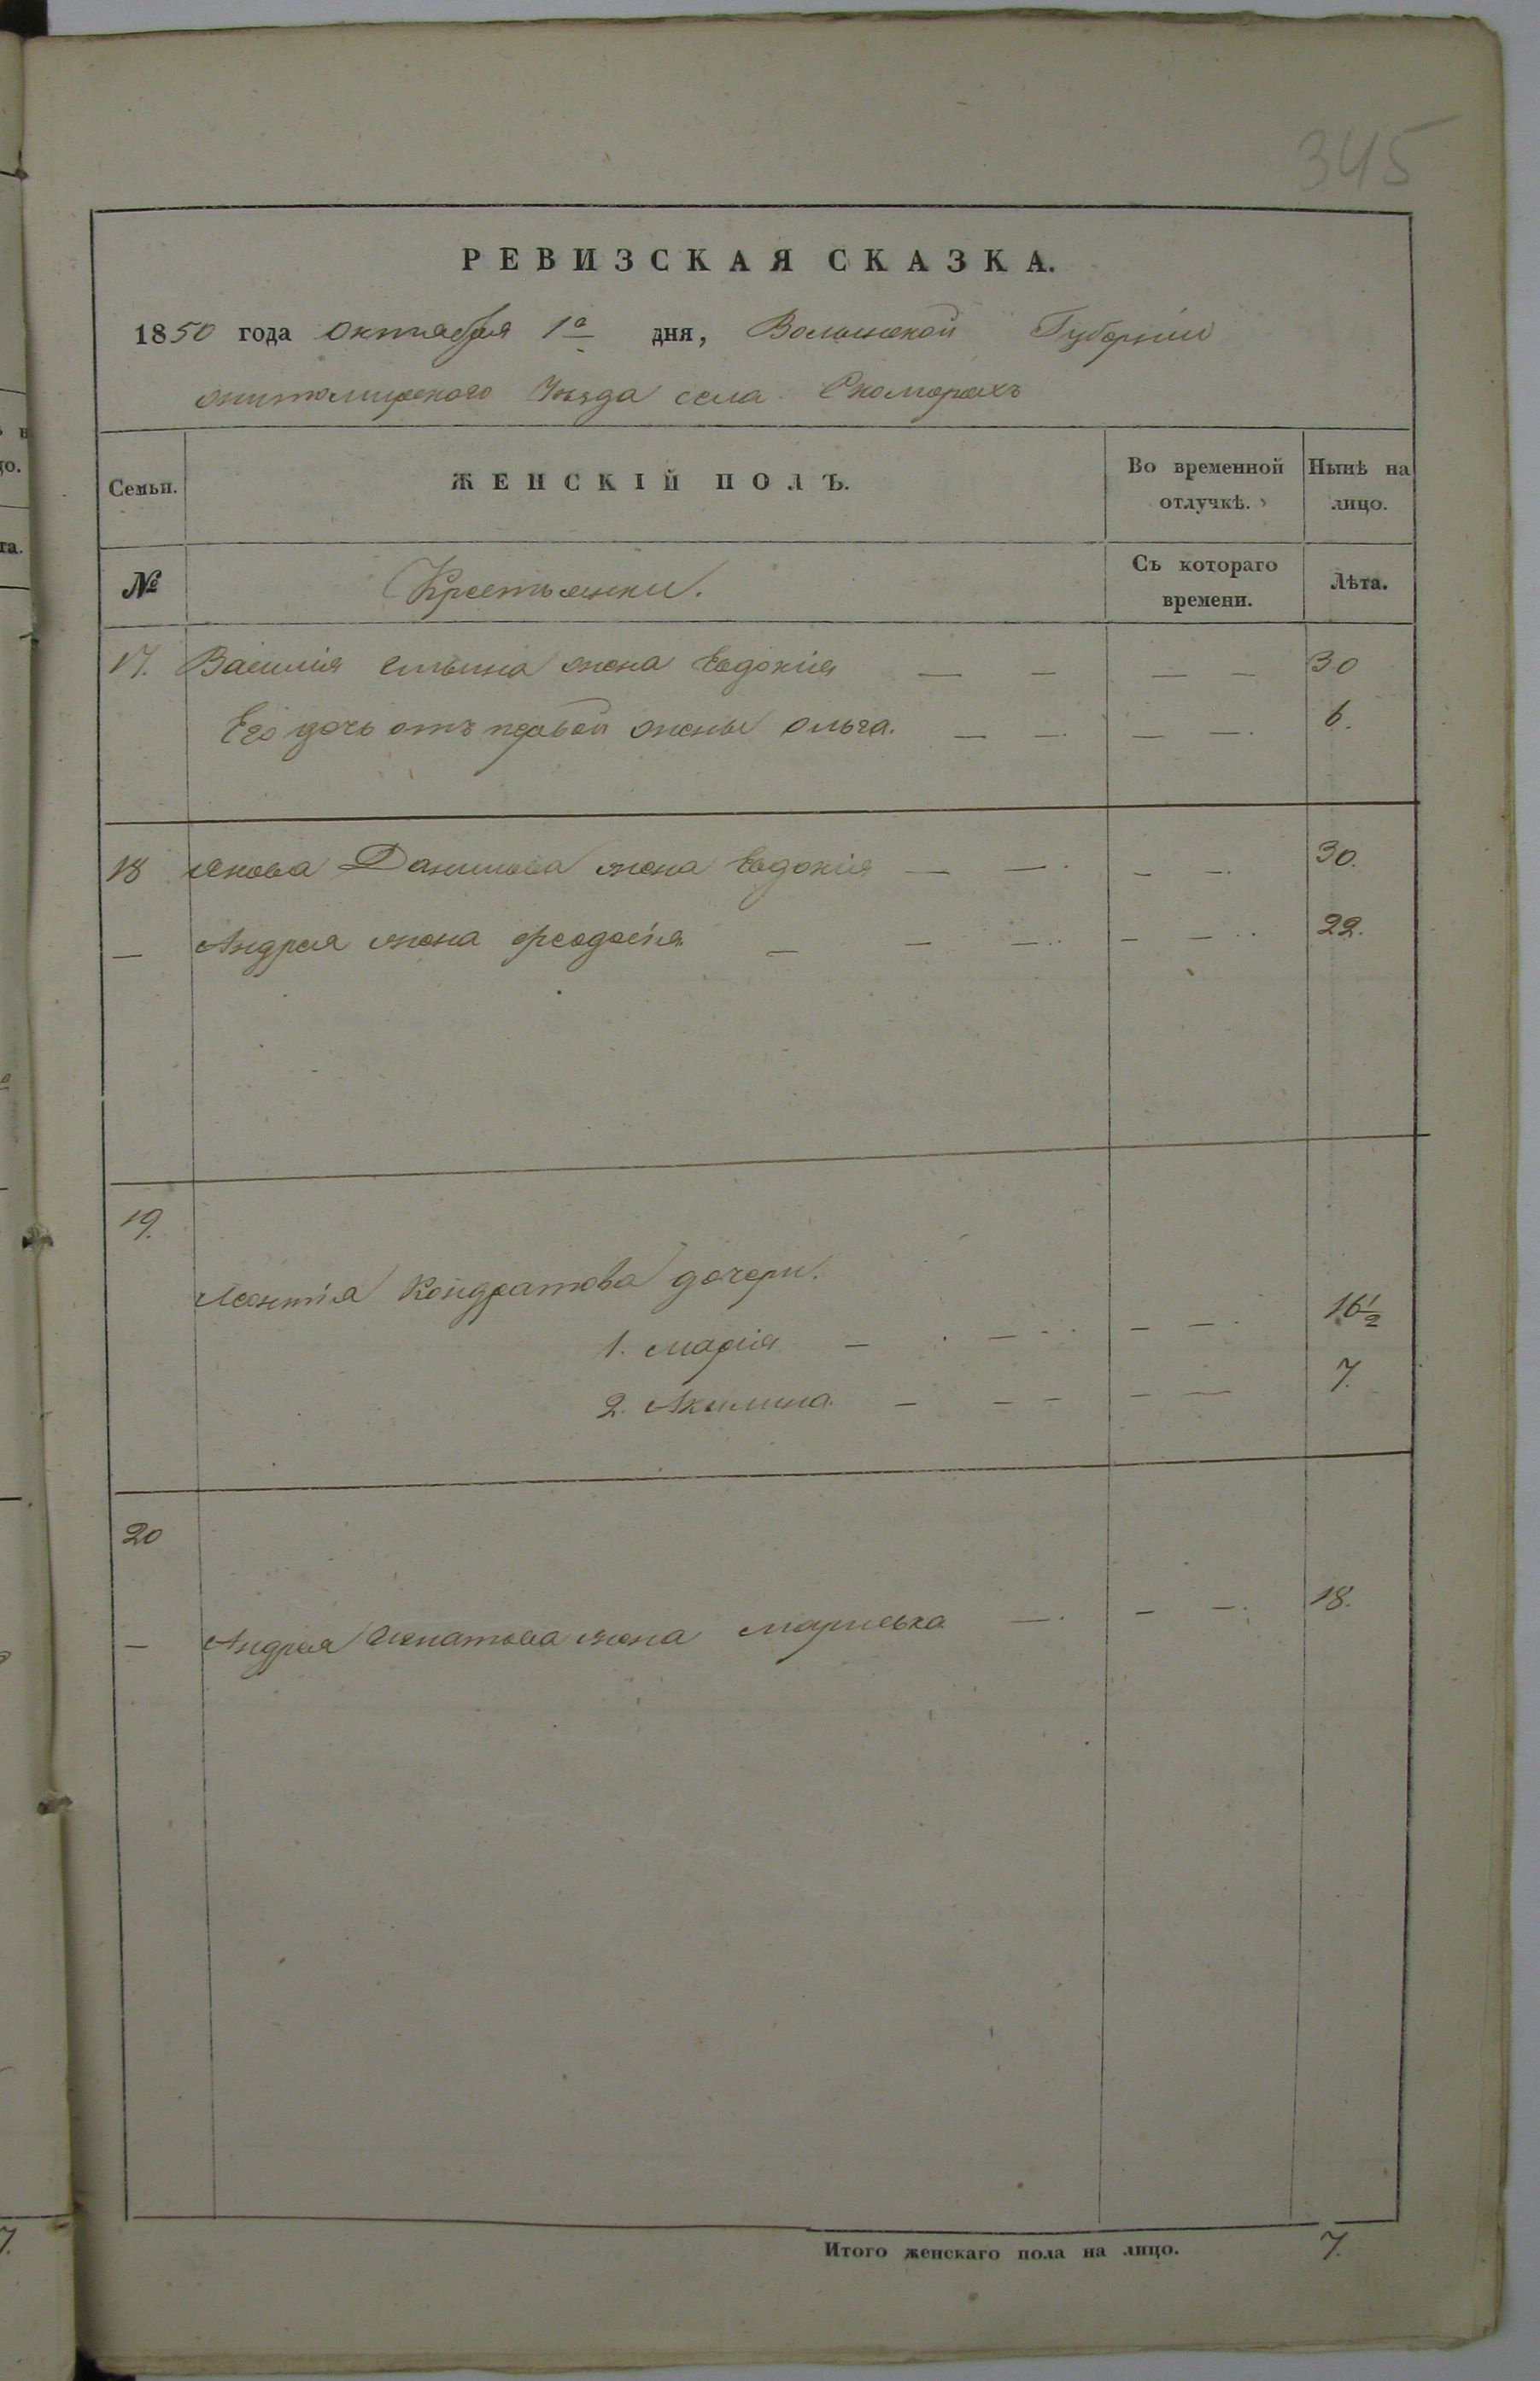 345
РЕВИЗСКАЯ СКАЗКА.
1850 года Октября 1го дня, Волынской Губернии
житомирского Уезда села Скоморохъ
Семьи. ЖЕНСКІЙ ПОЛЪ. Во временной отлучкѣ. Нынѣ на лицо.
№ Крестьянки. Съ котораго времени. Лѣта.
17. Василія Ильина жена Евдокія — — — — 30
Его дочь отъ первой жены Ольга. — — — — 6.
18 Якова Данилова жена Евдокія — — — — 30.
— Андрея жена Феодосія — — — — — 22.
19.
Леонтія Кондратова дочери.
1. Марія — — — — 16½
2. Акилина. — — — — — 7.
20
— Андрея Игнатова жена Мариська — — — 18.
Итого женскаго пола на лицо. 7.